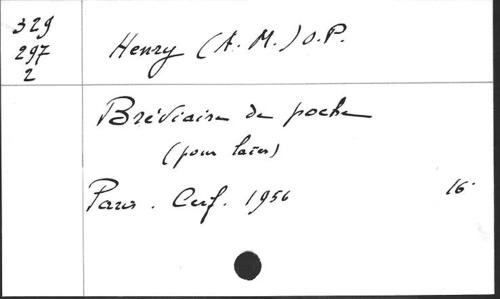 329
297
2
Henry (A. M.) O.P.
Bréviaire de poche
(pour laïcs)
Paris. Cerf. 1956 16°